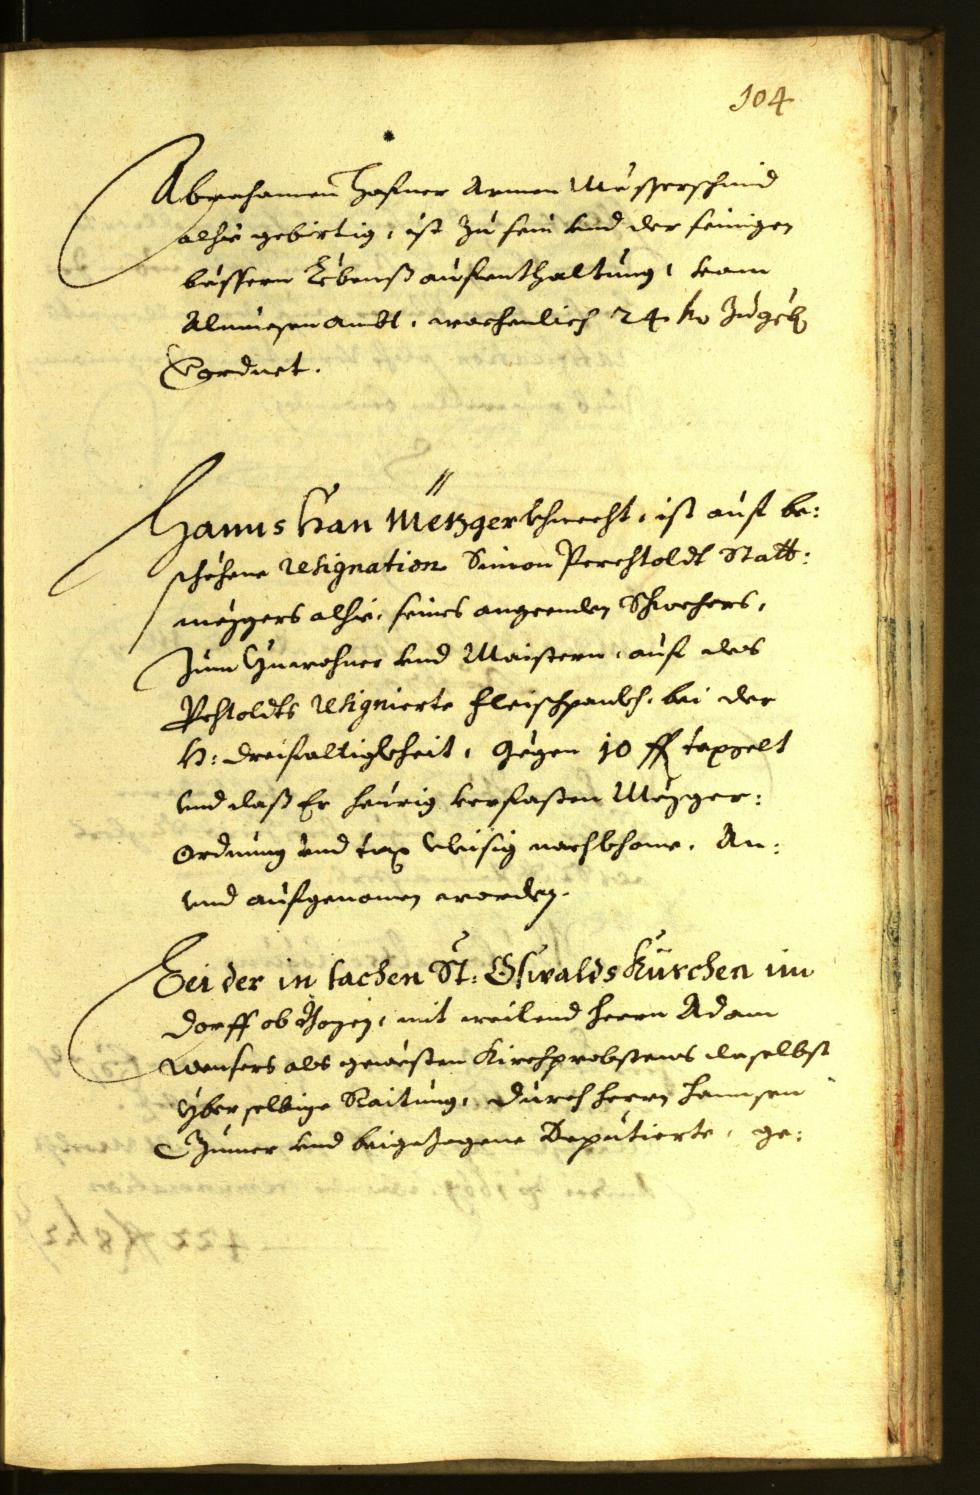 104
Abrahamen Hafner Armen Messerschmid
alhie gebirtig, ist zu sein und der seinigen
bessern Lebenß aufenthaltung, vom
Almuesen ambt, wochenlich 24 kr zugeb
Verordnet.
Hanns Han Metzger khnecht, ist auf be:
schehene resignation Simon Perchtoldt Statt:
mezgers alhie, seines angeenden Schwehers,
Zum Inwohner und Maistern, auf des
Perchtoldts resignierte Fleischpankh, bei der
H: dreifaltigkheit, gegen 10 fl taxgelt
und daß Er heurig verfasten Mezger:
ordnung und tax vleisig nachkhome, An:
und aufgenomen worden.
Bei der in sachen St: Oswalds Kürchen im
Dorff ob Bozen, mit weilend herrn Adam
als gewesten Kirchprobstens daselbst
yber selbige Raitung, durch herrn Hannsen
und beigezogene Deputierte, ge: